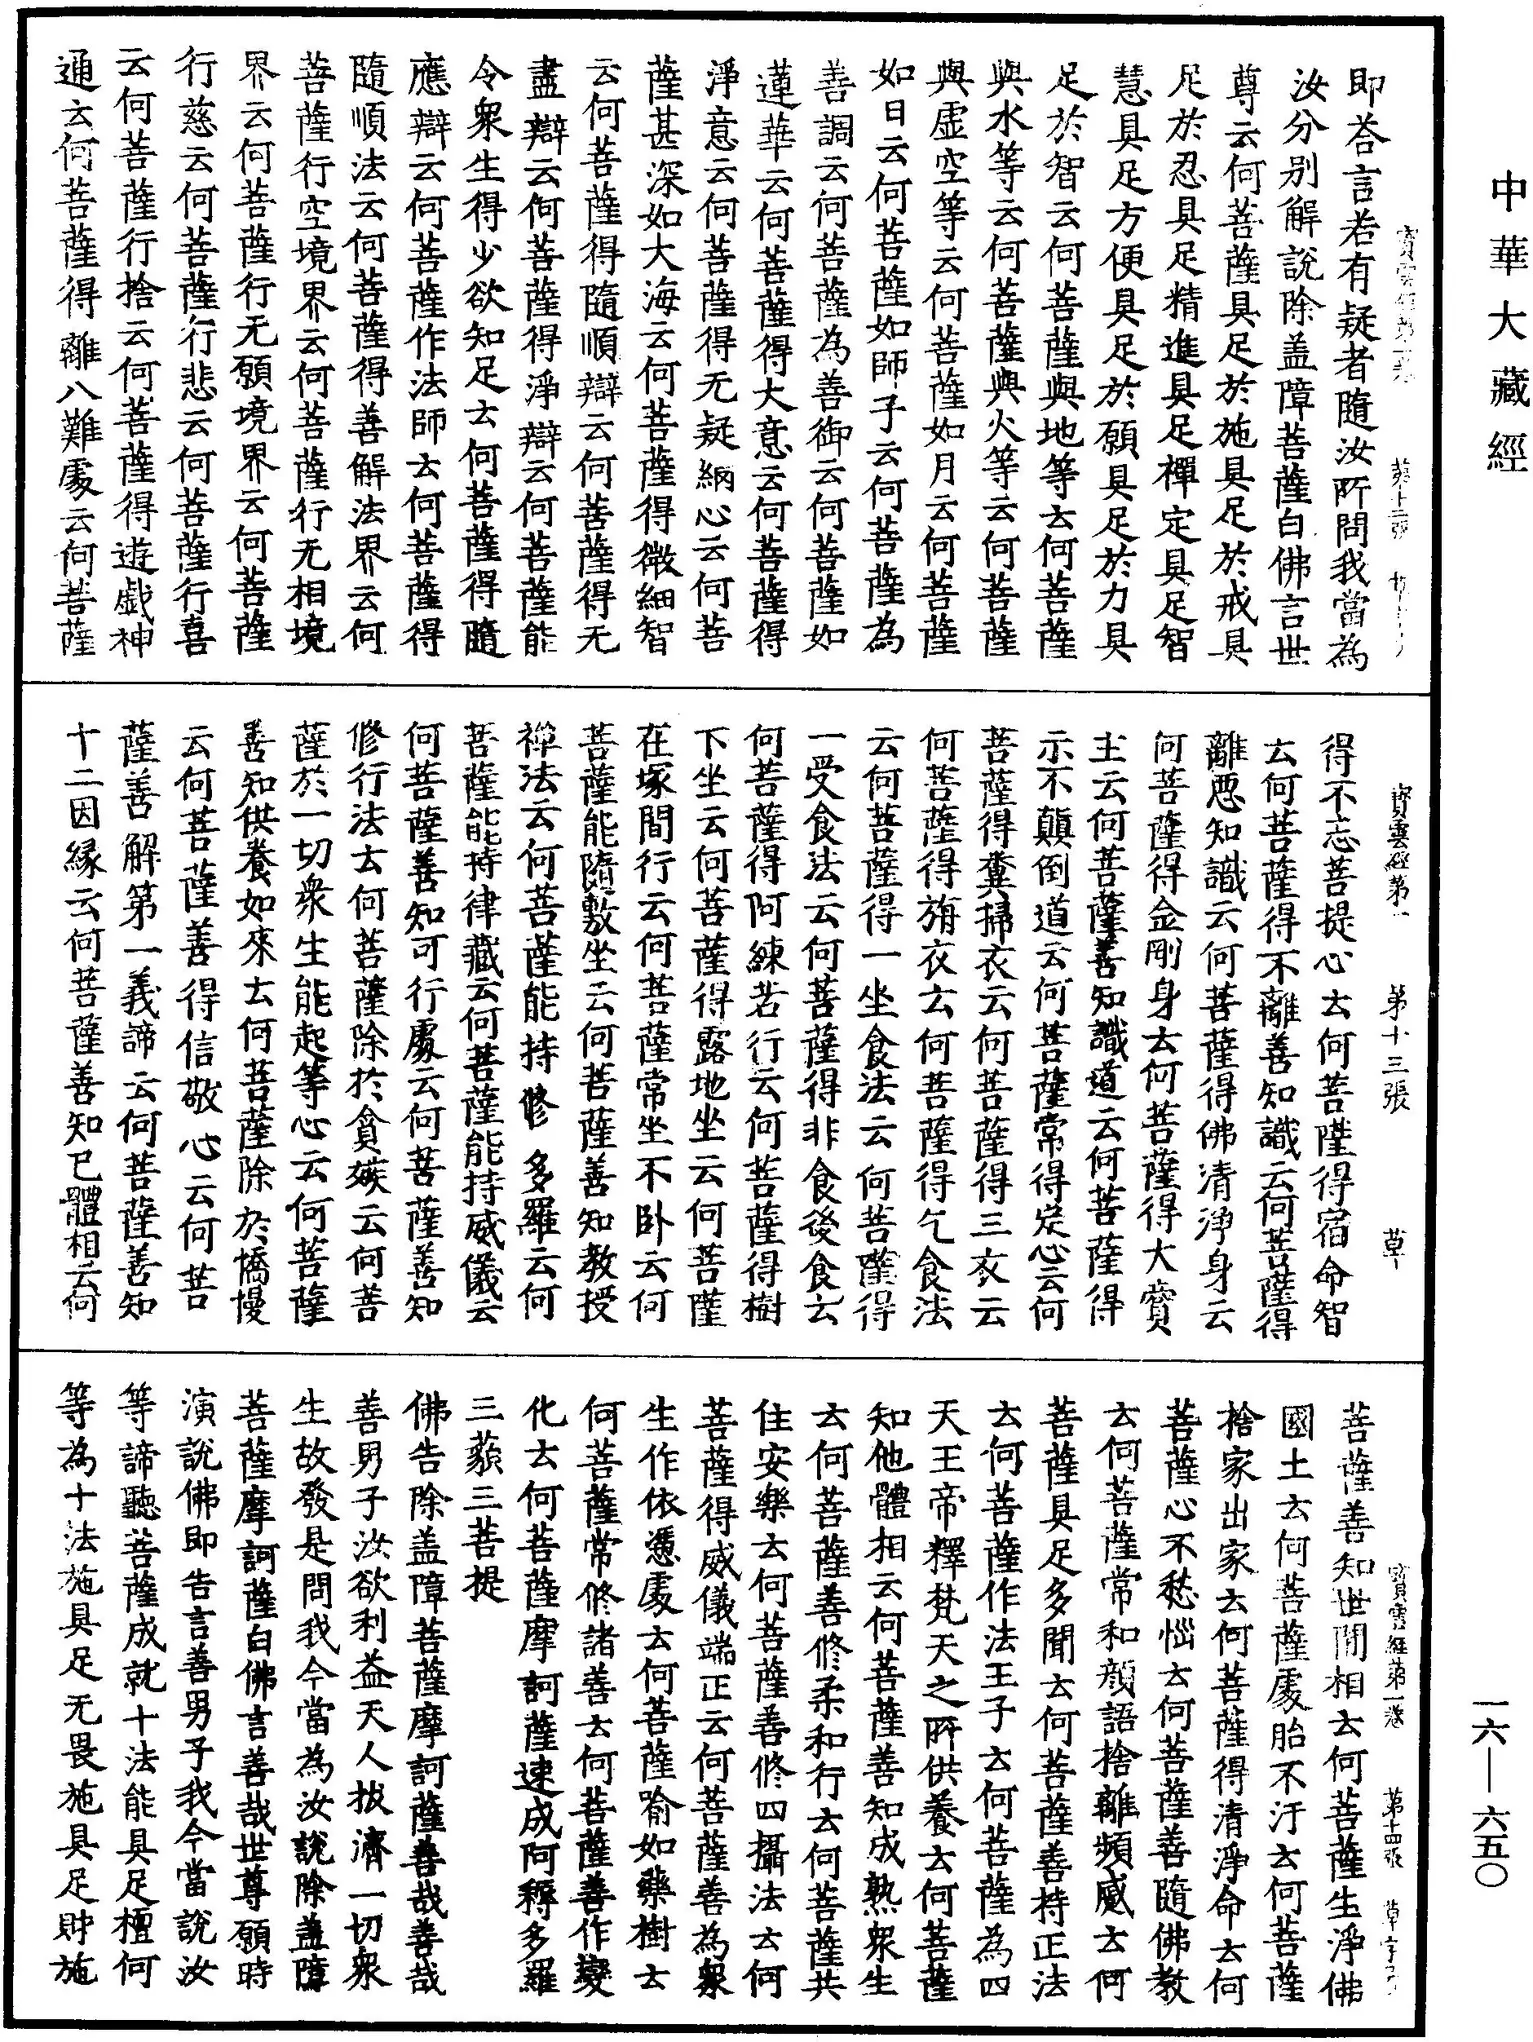 中華大藏經
即荅言若有疑者隨汝所問我當為
汝分别解說除盖障菩薩白佛言世
尊云何菩薩具足於施具足於戒具
足於忍具足精進具足禪定具足智
慧具足方便具足於願具足於力具
足於智云何菩薩與地等云何菩薩
與水等云何菩薩與火等云何菩薩
與虛空等云何菩薩如月云何菩薩
如日云何菩薩如師子云何菩薩為
善調云何菩薩為善御云何菩薩如
蓮華云何菩薩得大意云何菩薩得
淨意云何菩薩得无疑網心云何菩
薩甚深如大海云何菩薩得微細智
云何菩薩得隨順辯云何菩薩得无
盡辯云何菩薩得淨辯云何菩薩能
令衆生得少欲知足云何菩薩得隨
應辯云何菩薩作法師云何菩薩得
隨順法云何菩薩得善解法界云何
菩薩行空境界云何菩薩行无相境
界云何菩薩行无願境界云何菩薩
行慈云何菩薩行悲云何菩薩行喜
云何菩薩行捨云何菩薩得遊戲神
通云何菩薩得離八難處云何菩薩
寶雲經第一 第十三張 草
得不忘菩提心云何菩薩得宿命智
云何菩薩得不離善知識云何菩薩得
離惡知識云何菩薩得佛清淨身云
何菩薩得金剛身云何菩薩得大寶
主云何菩薩善知識道云何菩薩得
示不顛倒道云何菩薩常得定心云何
菩薩得糞掃衣云何菩薩得三衣云
何菩薩得旃衣云何菩薩得乞食法
云何菩薩得一坐食法云何菩薩得
一受食法云何菩薩得非食後食云
何菩薩得阿練若行云何菩薩得樹
下坐云何菩薩得露地坐云何菩薩
在塚間行云何菩薩常坐不卧云何
菩薩能隨敷坐云何菩薩善知教授
禪法云何菩薩能持修多羅云何
菩薩能持律藏云何菩薩能持威儀云
何菩薩善知可行處云何菩薩善知
修行法云何菩薩除於貪嫉云何菩
薩於一切衆生能起等心云何菩薩
善知供養如來云何菩薩除於憍慢
云何菩薩善得信敬心云何菩
薩善解第一義諦云何菩薩善知
十二因緣云何菩薩善知已體相云何
寶雲經第一卷 第十四張 草字号
菩薩善知世間相云何菩薩生淨佛
國土云何菩薩處胎不汙云何菩薩
捨家出家云何菩薩得清淨命云何
菩薩心不愁惱云何菩薩善隨佛教
云何菩薩常和顔語捨離頻蹙云何
菩薩具足多聞云何菩薩善持正法
云何菩薩作法王子云何菩薩為四
天王帝釋梵天之所供養云何菩薩
知他體相云何菩薩善知成熟衆生
云何菩薩善修柔和行云何菩薩共
住安樂云何菩薩善修四攝法云何
菩薩得威儀端正云何菩薩善為衆
生作依憑處云何菩薩喻如藥樹云
何菩薩常修諸善云何菩薩善作變
化云何菩薩摩訶薩速成阿耨多羅
三藐三菩提
佛告除盖障菩薩摩訶薩善哉善哉
善男子汝欲利益天人拔濟一切衆
生故發是問我今當為汝說除盖障
菩薩摩訶薩白佛言善哉世尊願時
演說佛即告言善男子我今當說汝
等諦聽菩薩成就十法能具足檀何
等為十法施具足无畏施具足財施
一六—六五〇